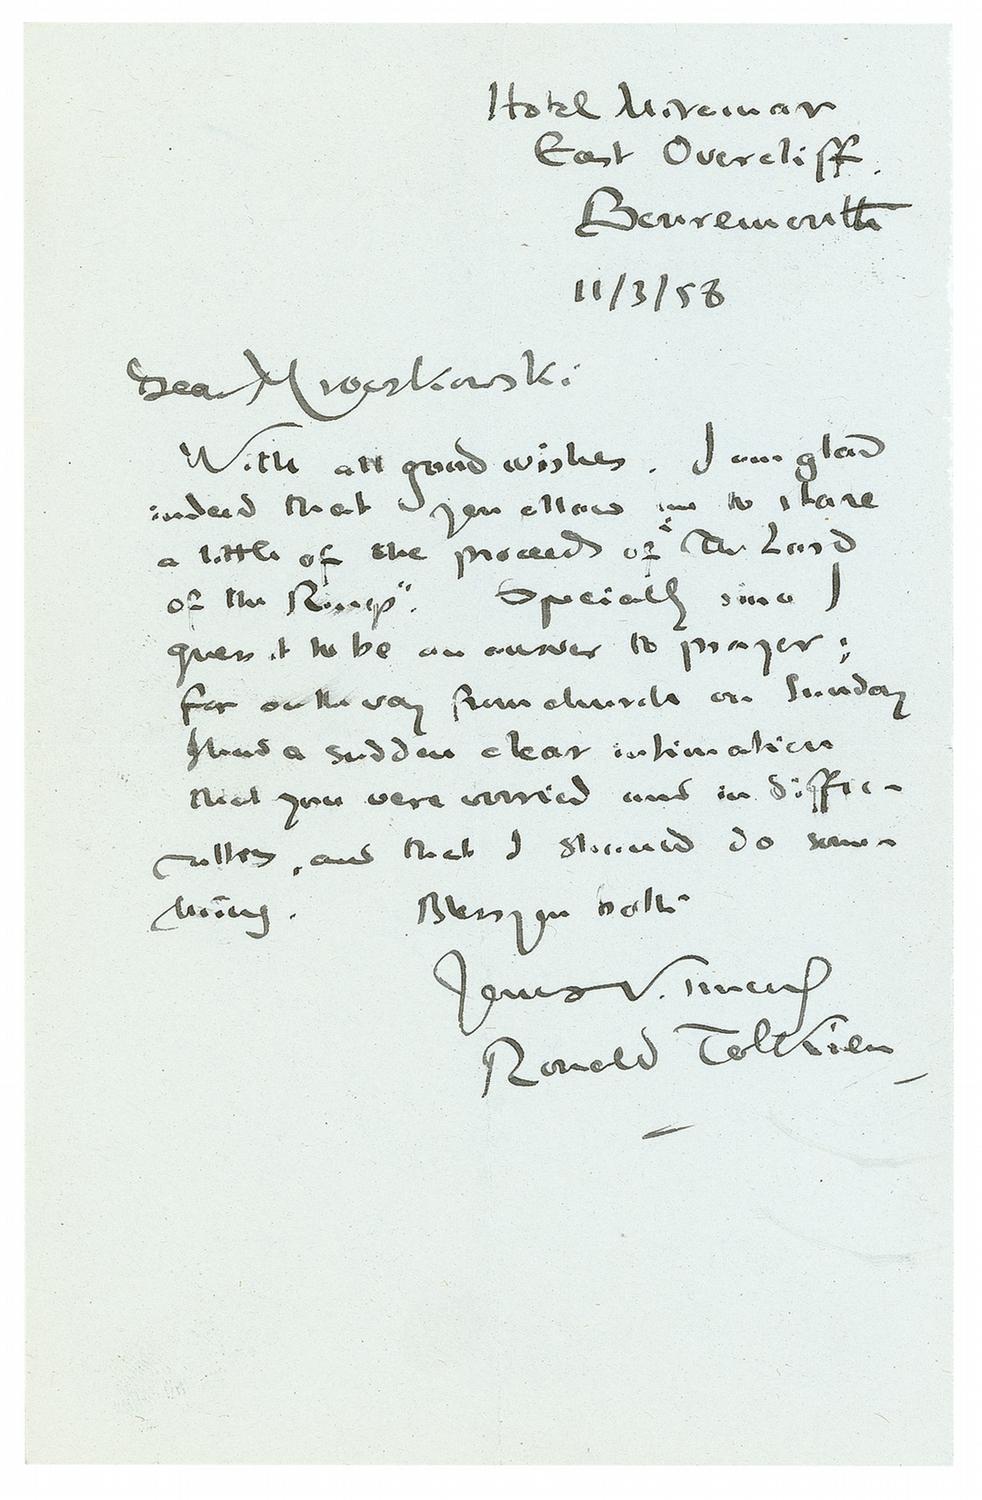 Hotel Miramar
East Overcliff.
Bournemouth
11/3/58
Dear Mroczkowski
With all good wishes. I am glad
indeed that you allow me to share
a little of the proceeds of "The Lord
of the Rings". Specially since I
guess it to be an answer to prayer;
for on the way from church on Sunday
I had a sudden clear intimation
that you were worried and in diffic-
ulties, and that I should do some-
thing. Bless you both
Yours v. sincerely
Ronald Tolkien